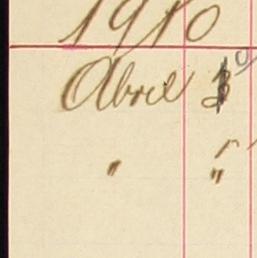 1910
Abril
" "